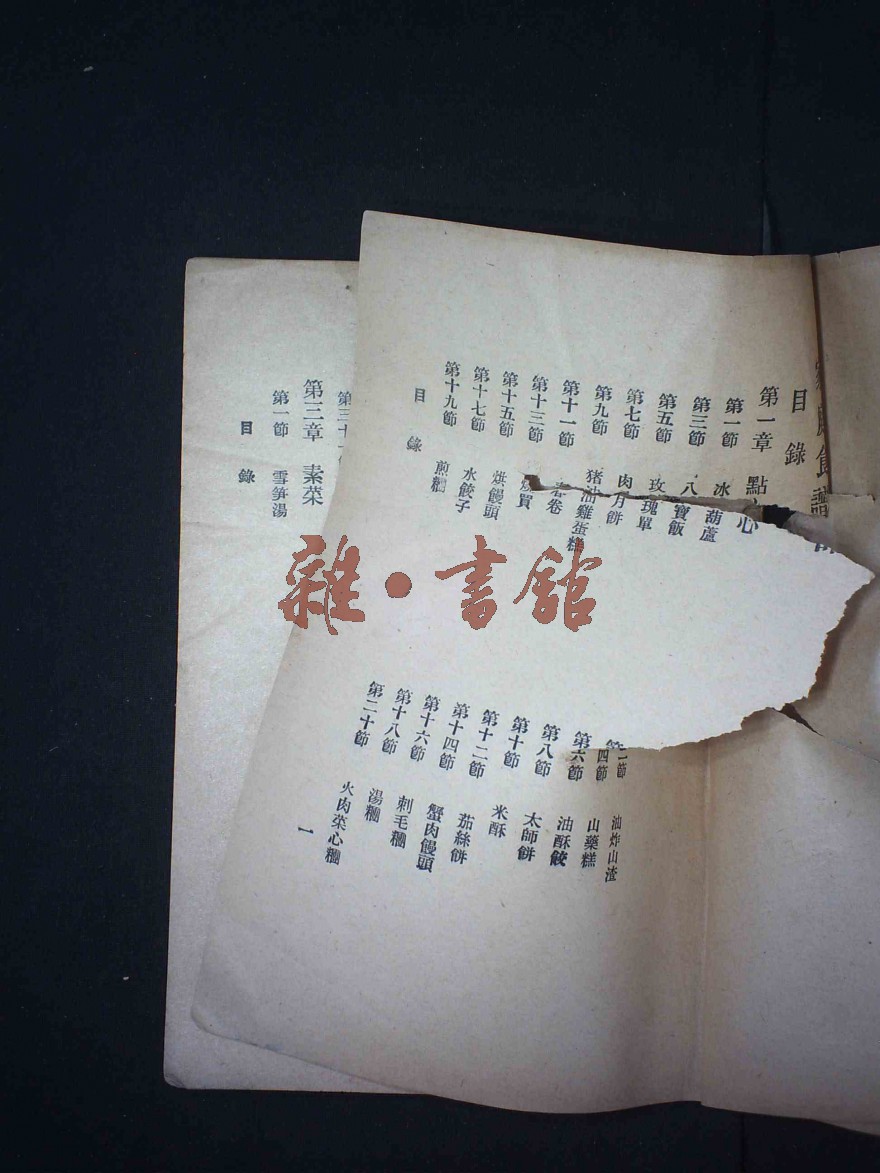 目錄
第一章 點心
第一節 冰 葫蘆
第二節 油炸山渣
第三節 八寶飯
第四節 山藥糕
第五節 玫瑰單
第六節 油酥餃
第七節 肉月餅
第八節 太師餅
第九節 猪油雞蛋糕
第十節 米酥
第十一節 春卷
第十二節 茄絲餅
第十三節 燒買
第十四節 蟹肉饅頭
第十五節 烘饅頭
第十六節 刺毛糰
第十七節 水餃子
第十八節 湯糰
第十九節 煎糰
第二十節 火肉菜心糰
目錄
一
第三章 素菜
第一節 雪笋湯
目錄
雜·書館